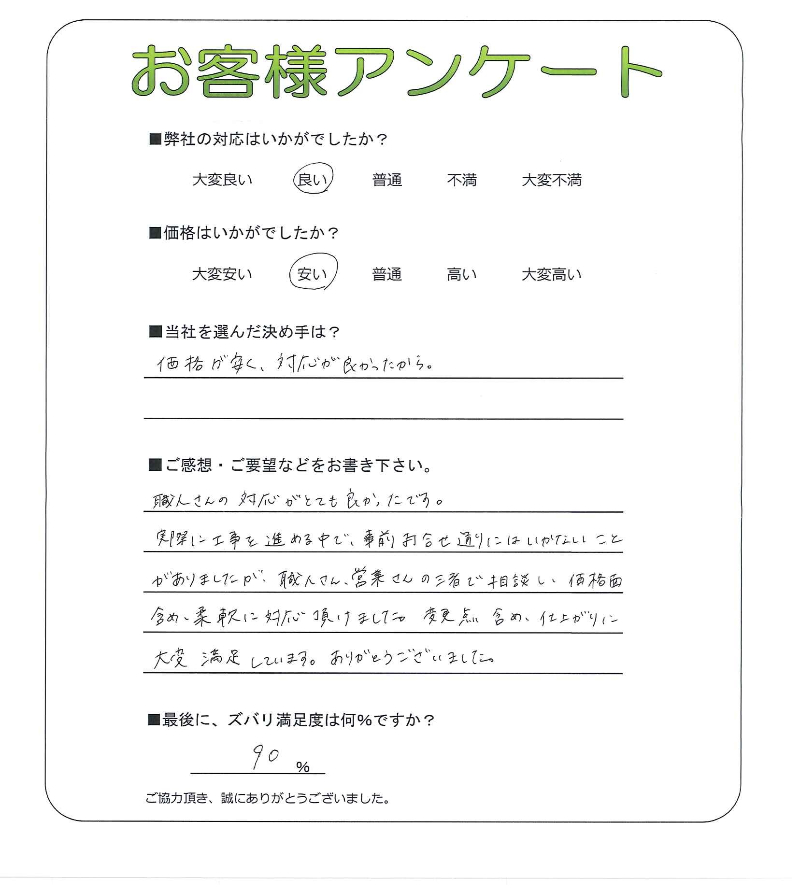 お客様アンケート
■弊社の対応はいかがでしたか？
大変良い 良い 普通 不満 大変不満
■価格はいかがでしたか？
大変安い 安い 普通 高い 大変高い
■当社を選んだ決め手は？
価格が安く、対応が良かったから。
■ご感想・ご要望などをお書き下さい。
職人さんの対応がとても良かったです。
実際に工事を進める中で、事前お合せ通りにはいかないこと
がありましたが、職人さん、営業さんの三者で相談し、価格面
含め、柔軟に対応頂けました。変更点含め、仕上がりに
大変満足しています。ありがとうございました。
■最後に、ズバリ満足度は何%ですか？
90 %
ご協力頂き、誠にありがとうございました。